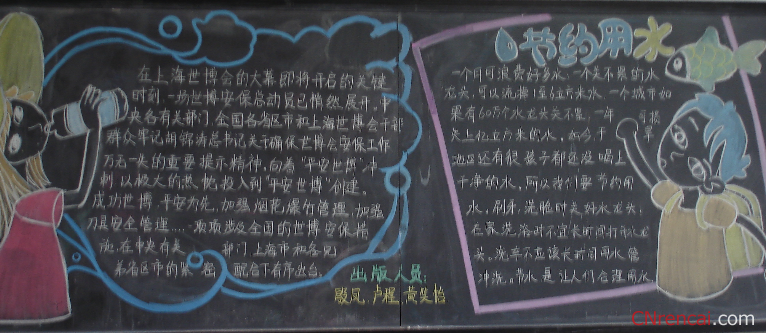 在上海世博会的大幕即将开启的关键
时刻,一场世博安保启动员已悄然展开,中
央各有关部门、全国各省区市和上海世博会干部
群众牢记胡锦涛总书记关于确保世博会安保工作
万无一失的重要提示精神,向着"平安世博"冲
刺,以极大的热忱投入到"平安世博"创建。
成功世博,平安为先,加强烟花爆竹管理、加强
刀具安全管理……一项项涉及全国的世博安保措
施,在中央有关 部门、上海市和各兄
弟省区市的紧 密 配合下有序出台。
出版人员:
殷凤、卢程、黄笑怡
节约用水
一个月可浪费好多水,一个关不紧的水
龙头,可以流掉1至6立方米水,一个城市如
果有60万个水龙头关不紧,一年
失上亿立方米的水,如今干
地区还有很 孩子都还没喝上
干净的水,所以我们要节约用
水,刷牙、洗脸时关好水龙头,
在家洗浴时不宜长时间打开水龙
头,洗车不应该长时间用水管
冲洗。节水是让人们合理用水,
可损
CNrencai.com